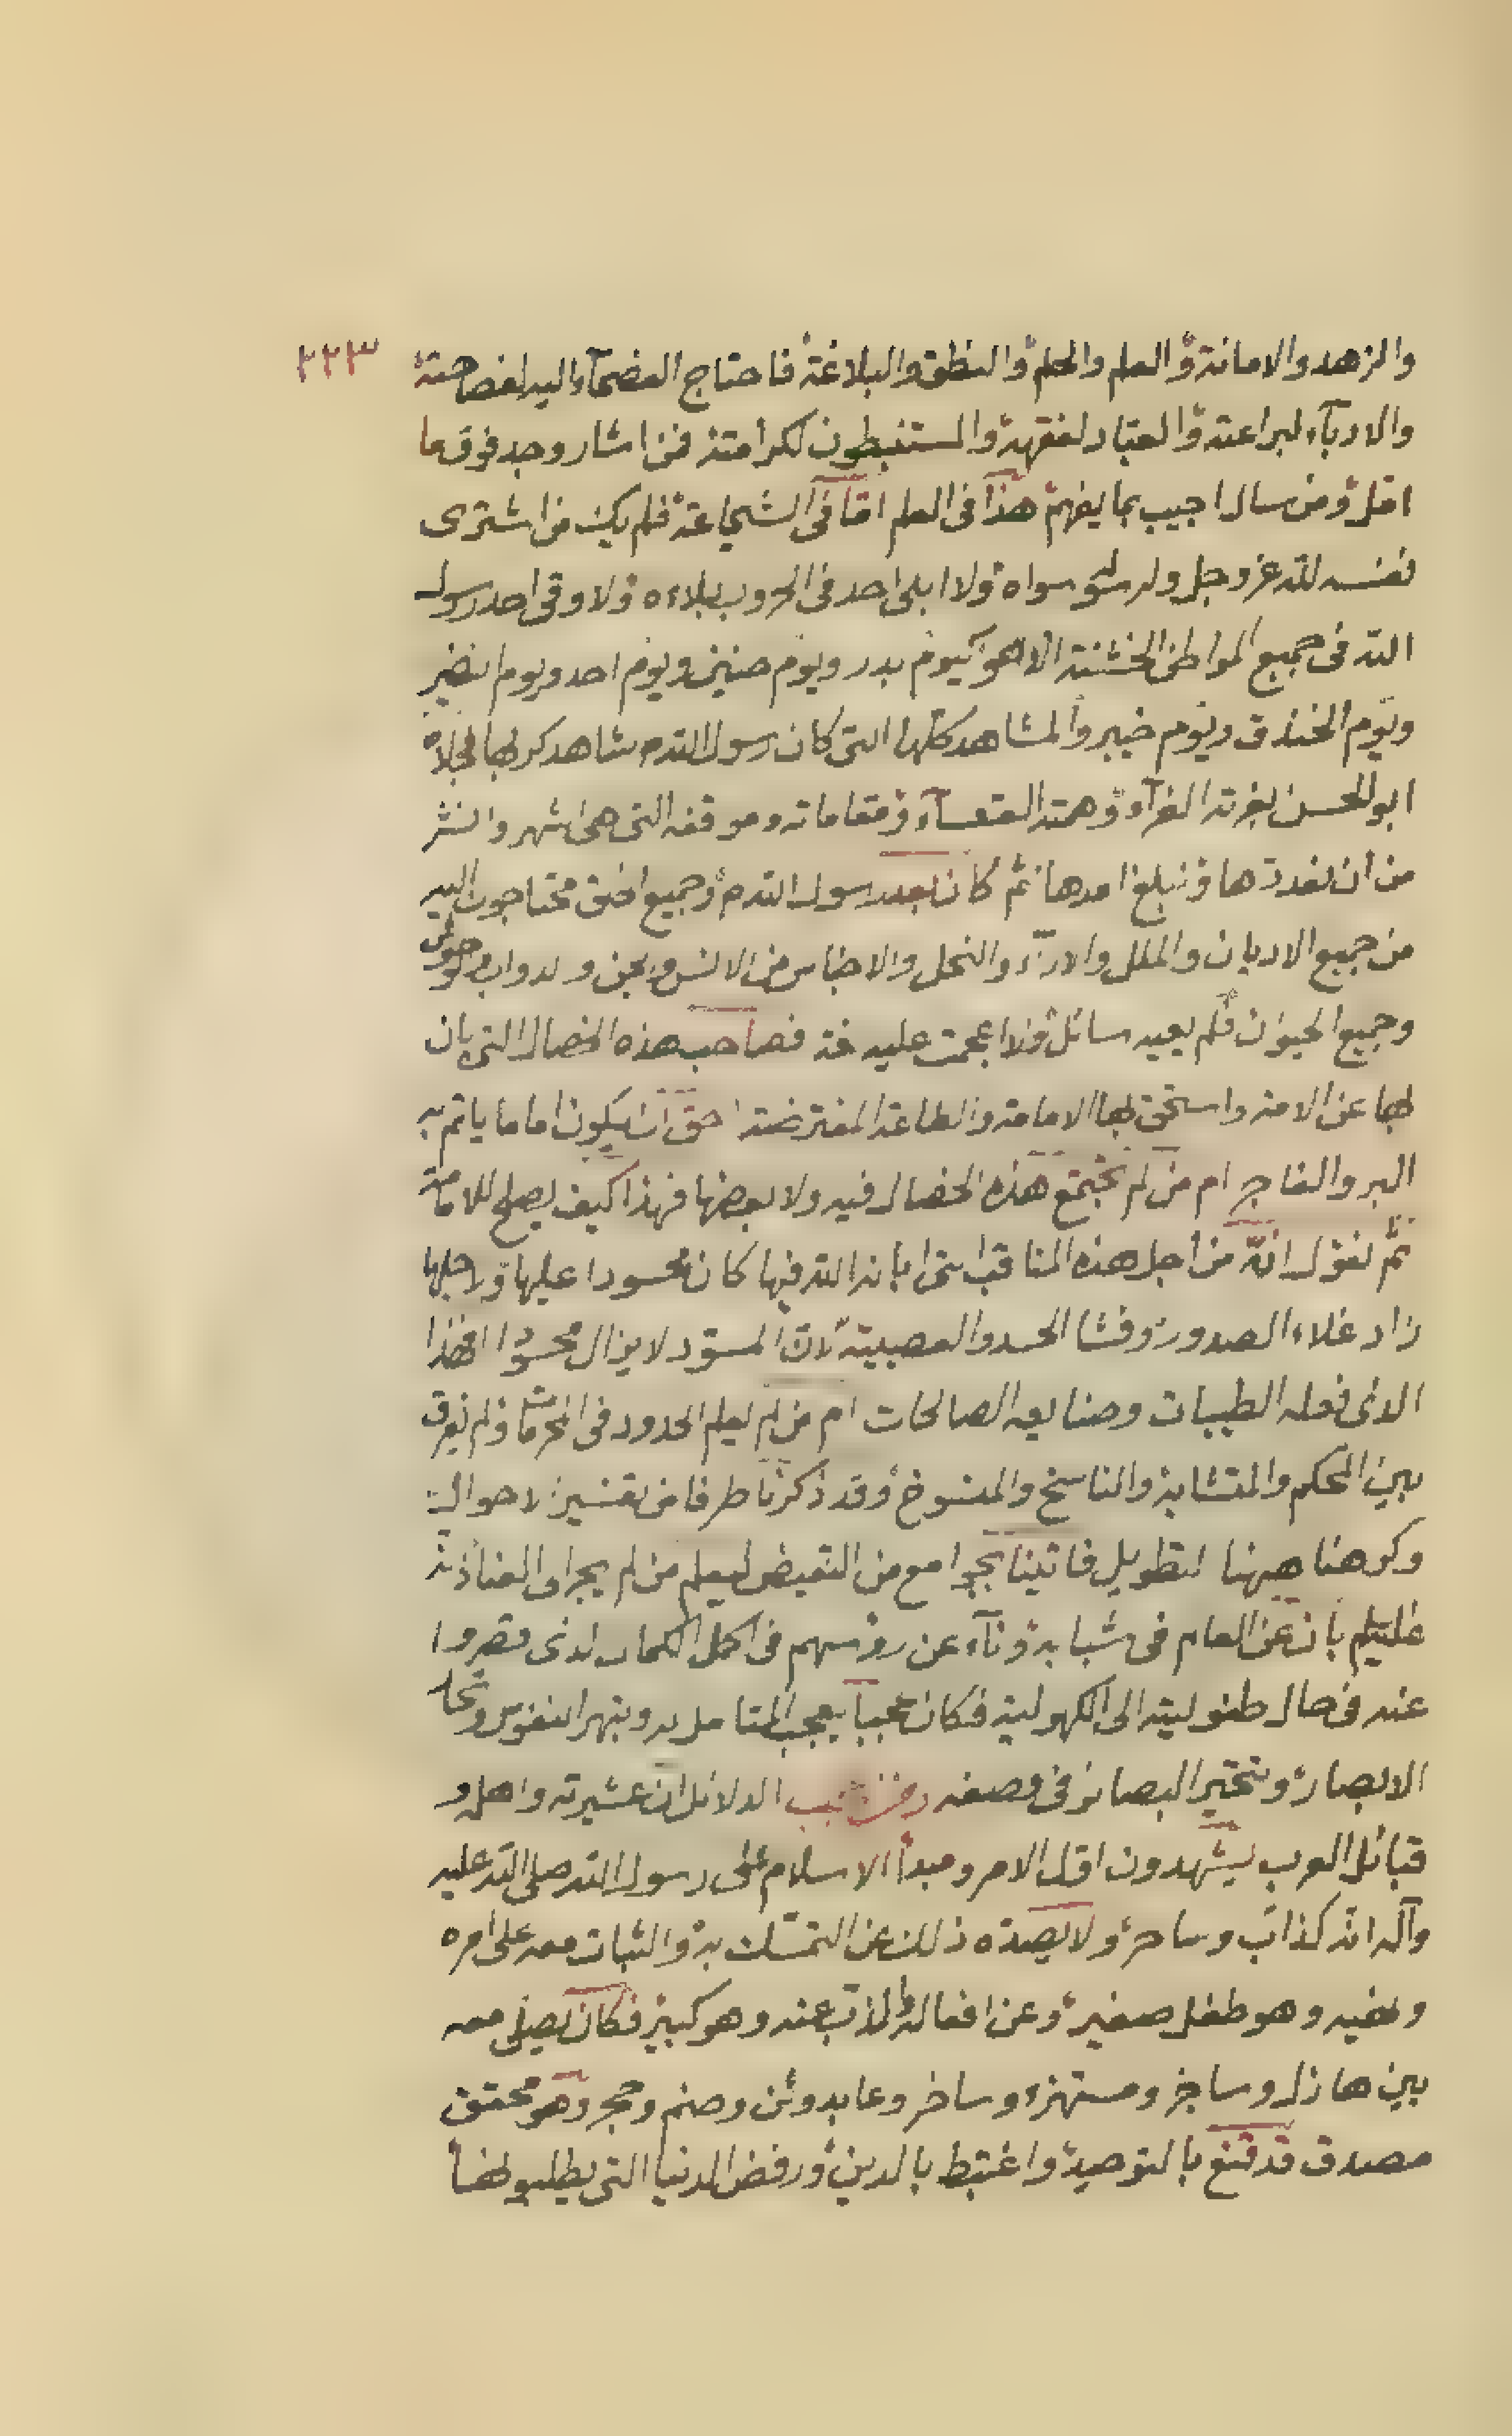 والزهد والامانة والعلم والحلم والمنطق والبلاغة فاحتاج الفصحآء اليه لفصاحته ٢٢٣
والادبآء لبراعته والعباد لفقهه والمستنبطون لكرامته فمن اشار وجد فوق ما
امّل ومن سال اجيب بما يفهم هذا فى العلم امّا فى الشجاعة فلم يك من اشترى
نفسه لله عز وجل ولرسوله سواه ولا ابلى احد فى الحروب بلاءه ولا وقى احد رسول
الله فى جميع المواطن الخشنة الا هو كيوم بدر ويوم حنين ويوم احد ويوم النضير
ويوم الخندق ويوم خيبر والمشاهد كلها التى كان رسول الله م شاهد كربها فجلاه
ابو الحسن بغرته الغرآء وهمته القعسآء ومقاماته وموقفه التى هى اشهر وانشر
من ان نعددها ونبلغ امدها ثم كان بعد رسول الله م وجميع الخلق محتاجون اليه
من جميع الاديان والملل والارآء والنحل والاجناس من الانس والجن والدواب
وجميع الحيوان فلم يعيه سائل ولا اعجمت عليه لغة فصاحب هذه الخصال التى بان
بها عن الامة واستحق بها الامامة والطاعة المفترضة احق ان يكون اماما ياتم به
البر والفاجر ام من لم تجتمع هذه الخصال فيه ولا بعضها فهذا كيف يصلح للامامة
ثم نقول انّه من اجل هذه المناقب التى ابانه الله فيها كان محسودا عليها ولاجلها
زاد غلاء الصدور وفشا الحسد والعصبية لانّ المسوّد لا يزال محسودا افهذا
الذى فعله الطيبات وصنايعه الصالحات ام من لم يعلم الحدود فى المحرمات ولم يفرق
بين المحكم والمتشابه والناسخ والمنسوخ وقد ذكرنا طرفا من تفسير الاحوال
وكرهنا هيهنا التطويل فاتينا بجوامع من التعيض ليعلم من لم يجر
بان عن العام فى شبابه ونآء عن رؤسهم فى اكمل الكمال الذى قصروا
عنه فى حال طفوليته الى الكهولية فكان عجبا يعجب المتامل به ويبهر النفوس
الابصار ويتحير البصائر فى وصفه ومن عجب الدلائل ان عشيرته واهله و
قبائل العرب يشهدون اول الامر ومبدأ الاسلام على رسول الله صلى الله عليه
وآله انه كذاب وساحر ولا يصده ذلك عن التمسك به والثبات معه على امره
ونهيه وهو طفل صغير وعن افعاله والذب عنه وهو كبير فكان يصلى معه
بين هازل وساخر ومستهزء وساخر وعابد وثن وصنم وحجر وهو محقق
مصدق قد قنع بالتوحيد واغتبط بالدين ورفض الدنيا التى يطلبو لها